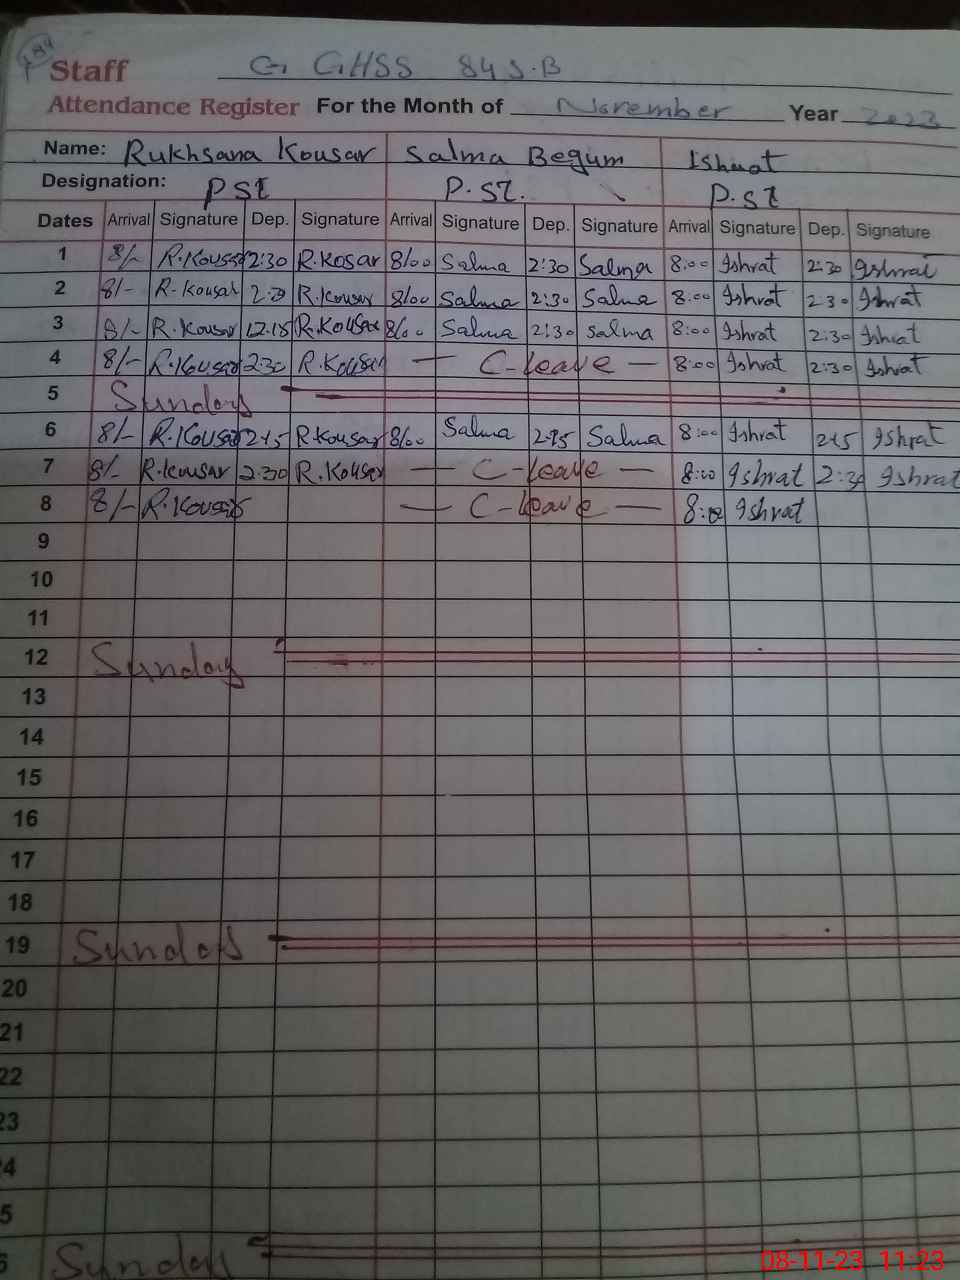 Staff G. GHSS 84 S.B
Attendance Register For the Month of November Year 2023
Name: Rukhsana Kousar Salma Begum Ishrat
Designation: PST P.ST. P.ST
Dates Arrival Signature Dep. Signature Arrival Signature Dep. Signature Arrival Signature Dep. Signature
1 8/- R.Kousar 2:30 R.Kosar 8/00 Salma 2:30 Salma 8:00 Ishrat 2:30 Ishrat
2 8/- R-Kousar R.Kousar 8/00 Salma 2:30 Salma 8:00 Ishrat 2:30 Ishrat
3 8/- R.Kousar 12.15 R.Kousar 8/00 Salma 2:30 Salma 8:00 Ishrat 2:30 Ishrat
4 8/- R.Kousar 2:30 R.Kousar — C-leave — 8:00 Ishrat 2:30 Ishrat
5 Sunday
6 8/- R.Kousar 2:15 R.Kousar 8/00 Salma Salma 8:00 Ishrat Ishrat
7 8/- R.Kousar 2:30 R.Kousar — C-leave — 8:00 Ishrat 2:30 Ishrat
8 8/- R.Kousar — C-leave — 8:00 Ishrat
9
10
11
12 Sunday
13
14
15
16
17
18
19 Sunday
20
21
22
23
4
5
6 Sunday
08-11-23 11:23